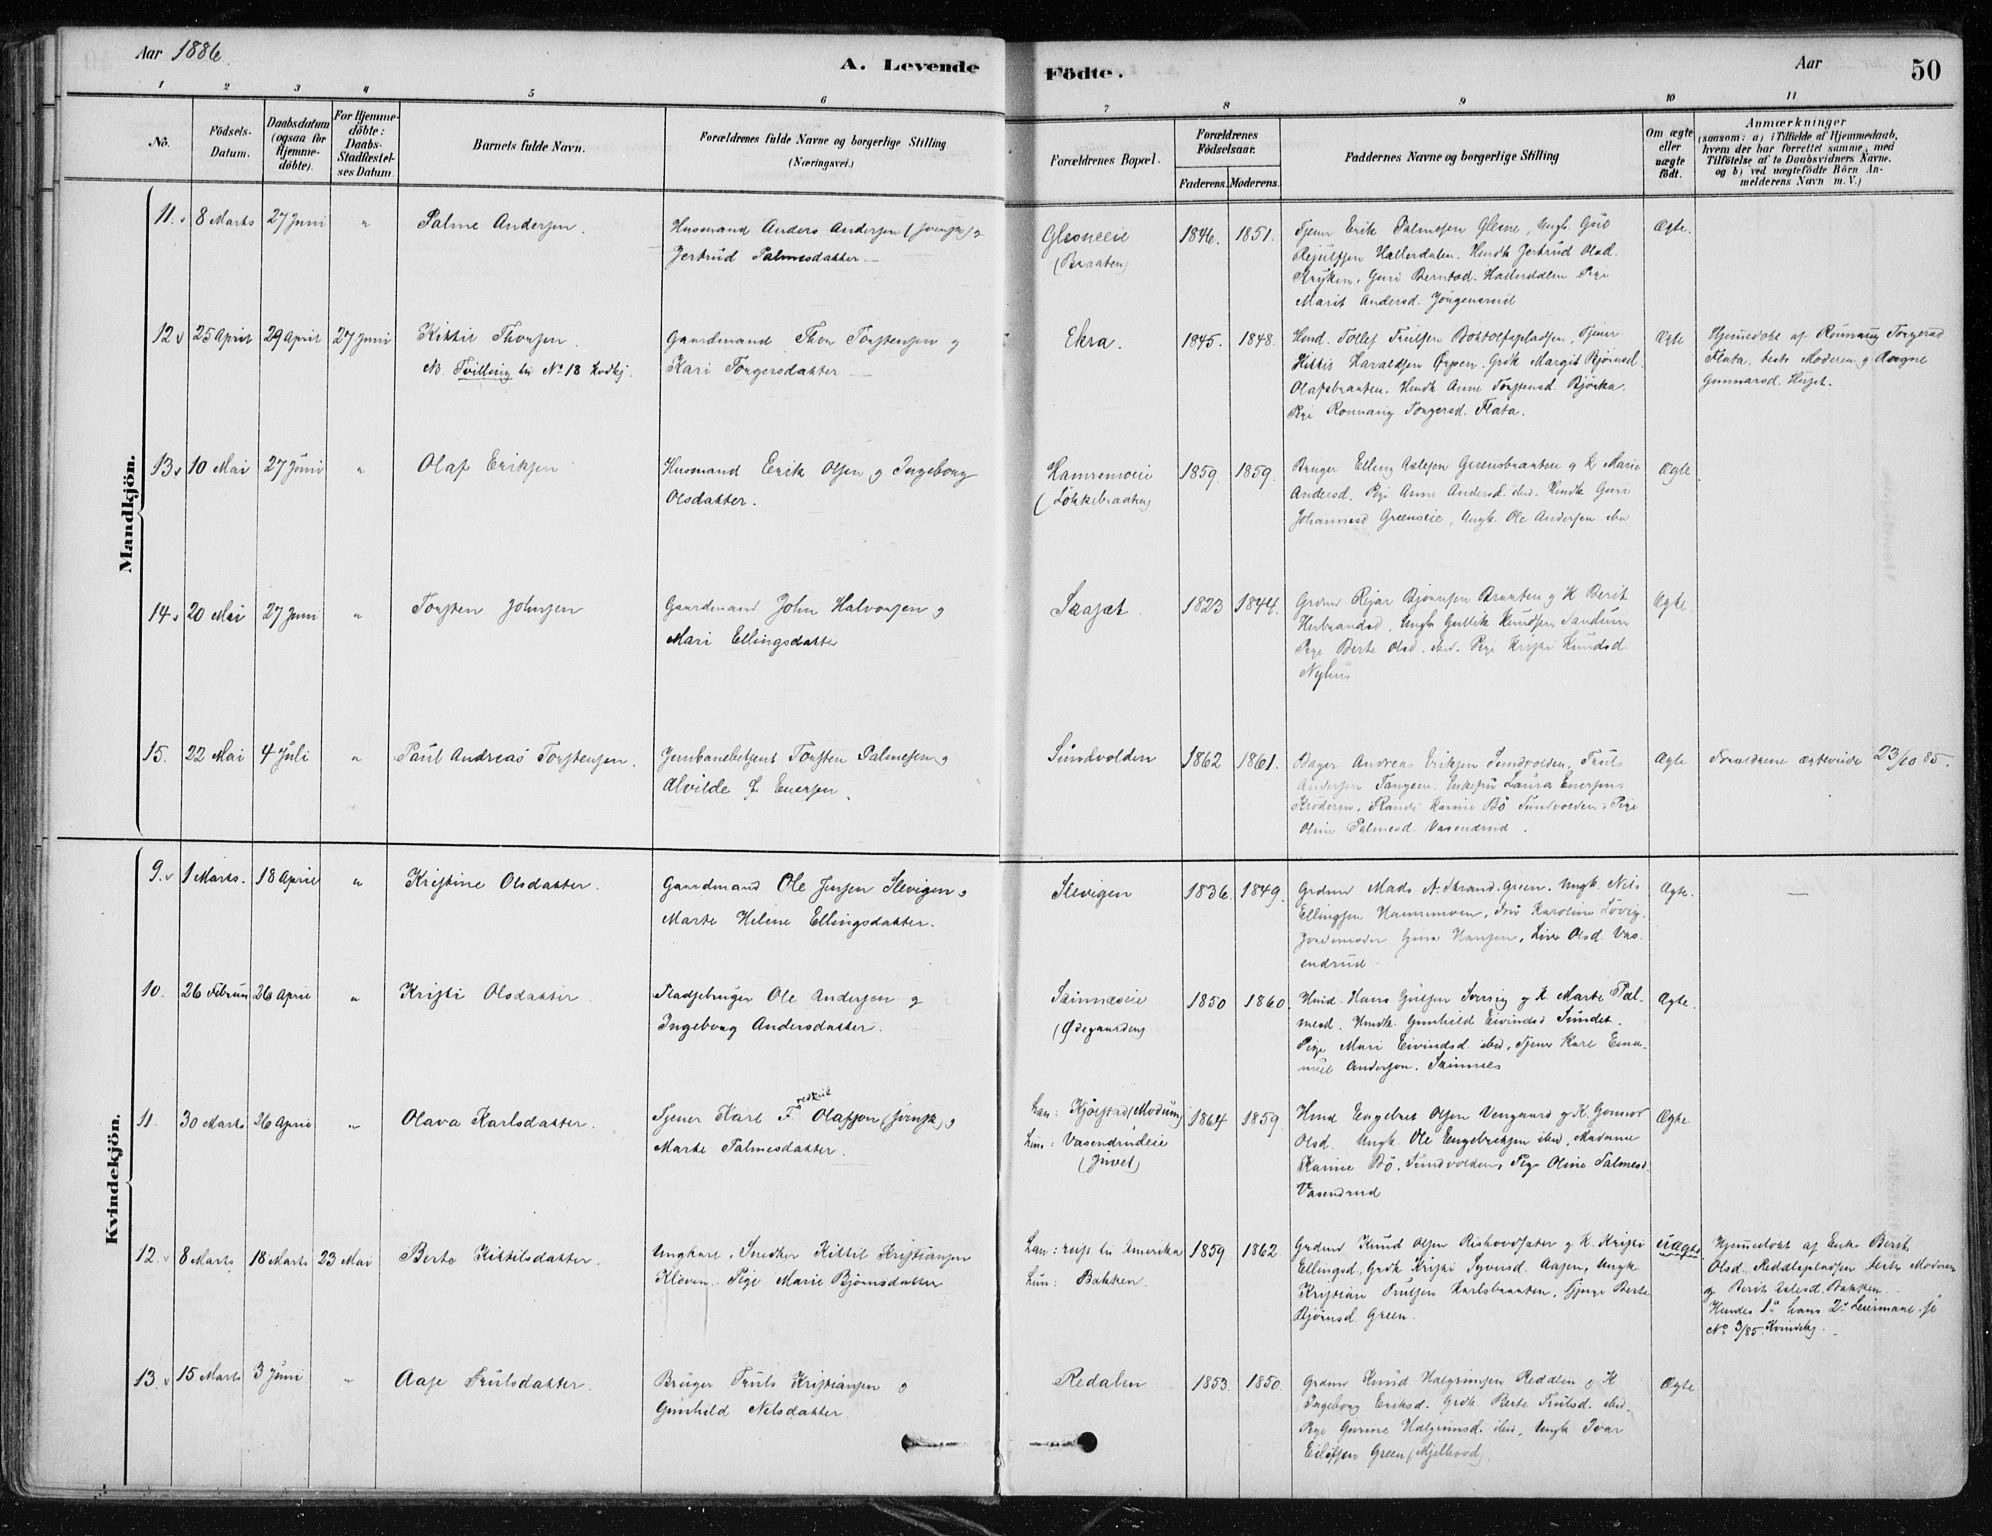 Aar 1886.
A. Levende Födte.
Aar
50
1 2 3 4 5 6 7 8 9 10 11
No.
Födsels-
Datum.
Daabsdatum
(ogsaa for
Hjemme-
döbte).
For Hjemme-
döbte:
Daabs-
Stadfæstel-
ses Datum
Barnets fulde Navn.
Forældrenes fulde Navne og borgerlige Stilling
(Næringsvei.)
Forældrenes Bopæl.
Forældrenes
Födselsaar.
Faderens. Moderens.
Faddernes Navne og borgerlige Stilling
Om ægte
eller
uægte
födt.
Anmærkninger
(saasom: a) i Tilfælde af Hjemmedaab,
hvem der har forrettet samme, med
Tilföielse af to Daabsvidners Navne.
og b) ved uægtefödte Börn An-
melderens Navn m. V.)
Mandkjön.
11. 8 Marts 27 Juni " Palme Andersen.
Husmand Anders Andersen (svensk) og
Jertrud Palmesdatter
Glesneeie
(Braaten)
1846. 1851.
Tjener Erik Palmesen Glesne, Ungk. Gul
Rejulfsen Hallerdalen. Hmdk Jertrud Olsd.
Stryken, Guri Berntsd. Hallerdalen Pige
Marit Andersd. Jörgensrud
Ægte.
12 25 April 29 April 27 Juni Kittil Thorsen.
NB. Tvilling til No 18 Kvdkj.
Gaardmand Thor Torstensen og
Kari Torgersdatter
Ekra.
1845. 1848.
Hmd. Tollef Trulsen Bottolfspladsen, Tjener
Kittil Haraldsen Ørpen. Grdk Margit Bjørnsd.
Olafsbraaten. Hmdk Anne Torstensd. Bjørka.
Pige Rønnaug Torgersd. Flata.
Ægte
Hjemmedøbt af Rønnaug Torgersd
Flata, test. Moderen og Aagne
Gunnarsd. Huset.
13 10 Mai 27 Juni " Olaf Eriksen
Husmand Erik Olsen og Ingeborg
Olsdatter.
Hamremoeie
(Løkkebraaten)
1859. 1859.
Bruger Elling Aslesen Greensbraaten og K Marie
Andersd. Pige Anne Andersd. ibid. Hmdk Guri
Johannesd Greenseie, Ungk. Ole Andersen ibid
Ægte
14 20 Mai 27 Juni " Torsten Johnsen
Gaardmand John Halvorsen og
Mari Ellingsdatter
Skaset.
1823 1844.
Grdmd Rejar Bjørnsen Braaten og K Berit
Herbrandsd, Ungk Gullik Knudsen Sandum
Pige Berte Olsd. ibid. Pige Kristi Knudsd
Nyhus
Ægte.
15. 22 Mai 4 Juli " Paul Andreas Torstensen.
Jernbanebetjent Torsten Palmesen og
Alvilde J. Enersen.
Sundvolden
1862 1861.
Bager Andreas Eriksen Sundvolden, Truls
Andersen Tangen. Enkefru Laura Enersen
Krøderen, Karine Bø Sundvolden, Pige
Oline Palmesd. Vasendrud.
Ægte
Forældrene ægteviede 23/10 85.
Kvindekjön.
9. 1 Marts. 18 April " Kristine Olsdatter.
Gaardmand Ole Jensen Slevigen og
Marte Helene Ellingsdatter.
Slevigen
1836. 1849.
Grdmd Mads A. Strand. Green. Ungk. Nils
Ellingsen Hamremoen, Fru Karoline Løvig.
Jordemoder Hansen, Live Olsd. Vas-
endrud
Ægte.
10. 26 Februar 26 April " Kristi Olsdatter.
Pladsebruger Ole Andersen og
Ingeborg Andersdatter.
Skinneseie
(Ødegaarden)
1850 1860.
Hmd. Hans Gulsen og K. Marte Pal-
mesd. Hmdk. Gunhild Eivindsd Sundet.
Pige Mari Eivindsd. ibid, Tjener Karl Ema-
nuel Andersen. Skinnes
Ægte.
11. 30 Marts 26 April " Olava Karlsdatter.
Tjener Karl Fredrik Olafson (svensk) og
Marte Palmesdatter.
Han: Kjølstad (Modum)
Hun: Vasendrudeie
(Juvet)
1864 1859
Hmd Engebret Olsen Vengaard og K. Gunnor
Olsd. Ungk. Ole Engebretsen ibid, Madame
Karine Bø, Sundvolden, Pige Oline Palmesd.
Vasendrud
Ægte.
12. 8 Marts 18 Marts 23 Mai Berte Kittilsdatter.
Ungkarl, Snedker Kittil Kristiansen
Kleven. Pige Marie Bjørnsdatter
Han: reist til Amerika
Hun: Bakken.
1859 1862
Grdmd Knud Olsen Rishovdsæter og K. Kristi
Ellingsd, Grdk Kristi Syversd. Aasen, Ungk.
Kristian Trulsen Karlsbraaten, Pige Berte
Bjørnsd. Green.
uægte.
Hjemmedøbt af Enke Berit
Olsd. Reddlspladsen test. Moderen
og Berit Bakken.
Hendes 1ste hans 2det Leiermaal. se
No 3/85. Kvindekj.
13. 15 Marts 3 Juni " Aase Trulsdatter.
Bruger Truls Kristiansen og
Gunhild Nilsdatter.
Redalen
1853. 1850.
Grdmd Knud Halgrimsen Reddlen og K
Ingeborg Eriksd. Grdk Berte Trulsd. ibid.
Pige Gurine Halgrimsd. ibid, Ungk Ivar
Green (Mjelhovd)
Ægte